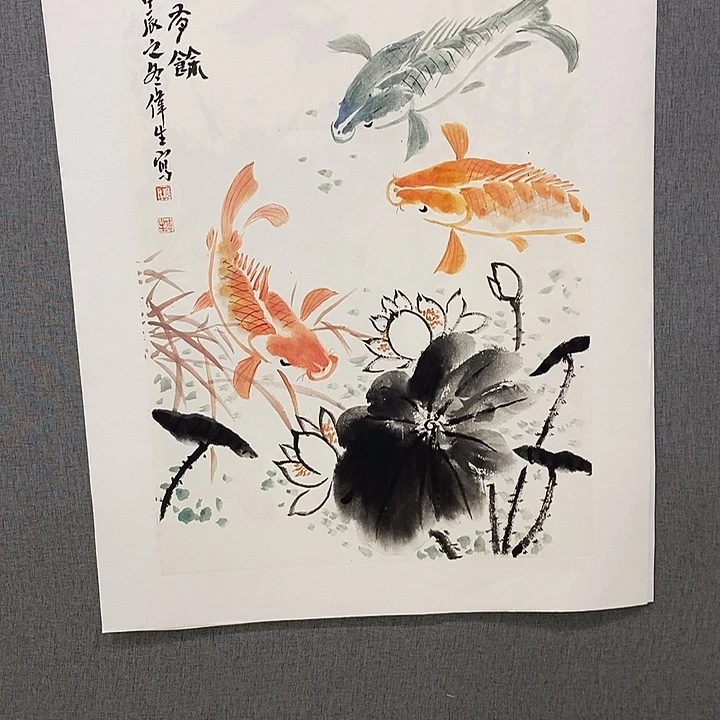 有餘
甲辰之冬偉生寫